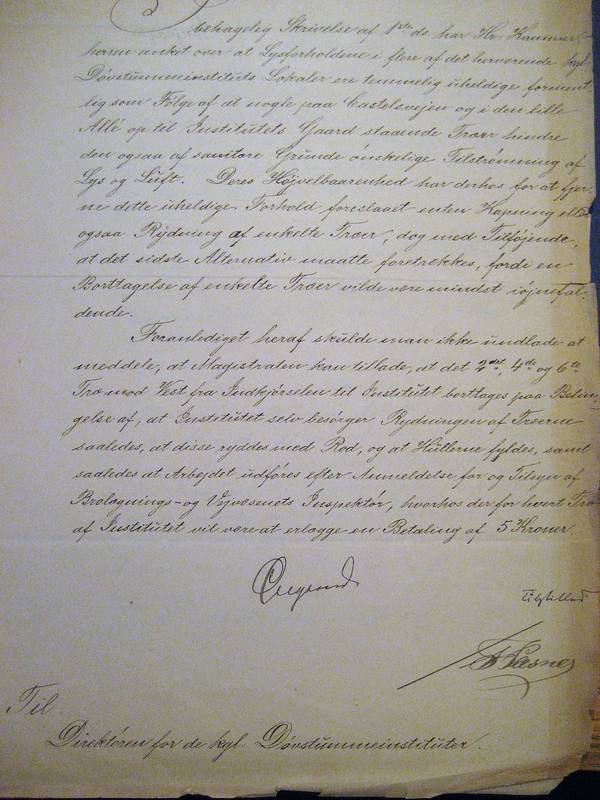 behagelig Skrivelse af 1ste ds. har Hr. Kammer-
herre anket over at Lysforholdene i flere af det herværende kgl.
Døvstummeinstituts Lokaler ere temmelig uheldige forment-
lig som Følge af at nogle paa Castelsvejen og i den lille
Allé op til Institutets Gaard staaende Træer hindre
den ogsaa af sanitære Grunde ønskelige Tilstrømning af
Lys og Luft. Deres Højvelbaarenhed har derhos for at fjer-
ne dette uheldige Forhold foreslaaet enten Kapning eller
ogsaa Rydning af enkelte Træer, dog med Tilføjende,
at det sidste Alternativ maatte foretrækkes, fordi en
Borttagelse af enkelte Træer vilde være mindst iøjnefal-
dende.
Foranlediget heraf skulde man ikke undlade at
meddele, at Magistraten kan tillade, at det 2det, 4de og 6te
Træ mod Vest fra Indkjørselen til Institutet borttages paa Betin-
gelse af, at Institutet selv besørger Rydningen af Træerne
saaledes, at disse ryddes med Rod, og at Hullerne fyldes, samt
saaledes at Arbejdet udføres efter Anmeldelse for og Tilsyn af
Brolægnings- og Vejvæsenets Inspektør, hvorhos der for hvert Træ
af Institutet vil være at erlægge en Betaling af 5 Kroner
Til
Direktøren for de kgl. Døvstummeinstituter.